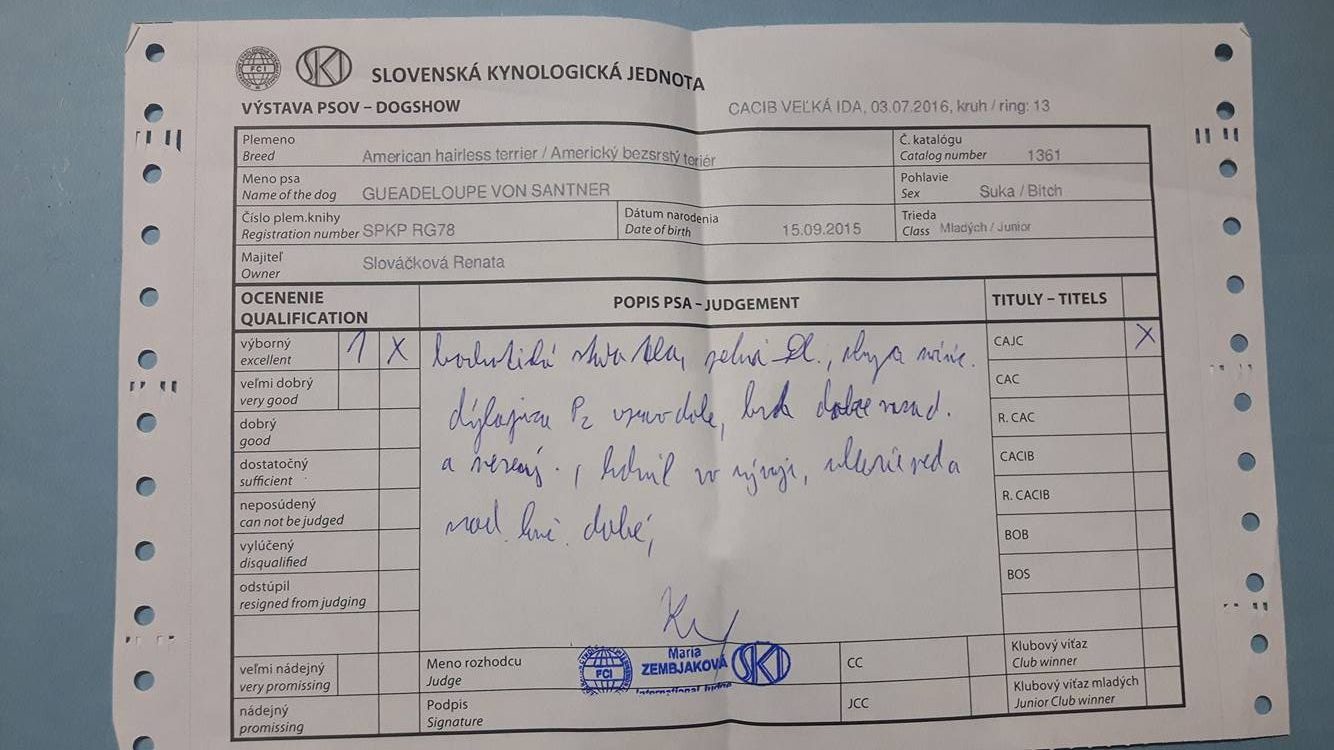 FCI SKJ SLOVENSKÁ KYNOLOGICKÁ JEDNOTA
VÝSTAVA PSOV – DOGSHOW
CACIB VEĽKÁ IDA, 03.07.2016, kruh / ring: 13
Plemeno
Breed American hairless terrier / Americký bezsrstý teriér
Č. katalógu
Catalog number 1361
Meno psa
Name of the dog GUEADELOUPE VON SANTNER
Pohlavie
Sex Suka / Bitch
Číslo plem.knihy
Registration number SPKP RG78
Dátum narodenia
Date of birth 15.09.2015
Trieda
Class Mladých / Junior
Majiteľ
Owner Slováčková Renata
OCENENIE
QUALIFICATION
POPIS PSA – JUDGEMENT
TITULY – TITELS
výborný
excellent 1 X
veľmi dobrý
very good
dobrý
good
dostatočný
sufficient
neposúdený
can not be judged
vylúčený
disqualified
odstúpil
resigned from judging
veľmi nádejný
very promissing
nádejný
promissing
P2
dobre
a
dobré,
Meno rozhodcu
Judge
Maria
ZEMBJAKOVÁ
International Judge
FCI
SKJ
Podpis
Signature
CAJC X
CAC
R. CAC
CACIB
R. CACIB
BOB
BOS
CC
JCC
Klubový víťaz
Club winner
Klubový víťaz mladých
Junior Club winner